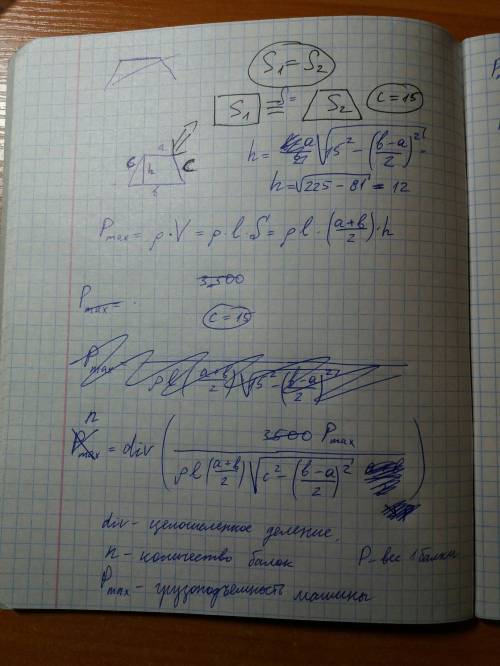 S₁ = S₂
S₁ = S₂ c = 15
a
c h c
b
h = √(15² − ((b−a)/2)²) =
h = √(225 − 81) = 12
P max = ρ·V = ρ·l·S = ρl·((a+b)/2)·h
3500
P max = .
c = 15
P max =
ρl((a+b)/2)√(15² − ((b−a)/2)²)
n
P max = div ( 3500 P max / (ρl((a+b)/2)√(c² − ((b−a)/2)²)) )
div - целочисленное деление.
n - количество балок P - вес 1 балки
P max - грузоподъемность машины